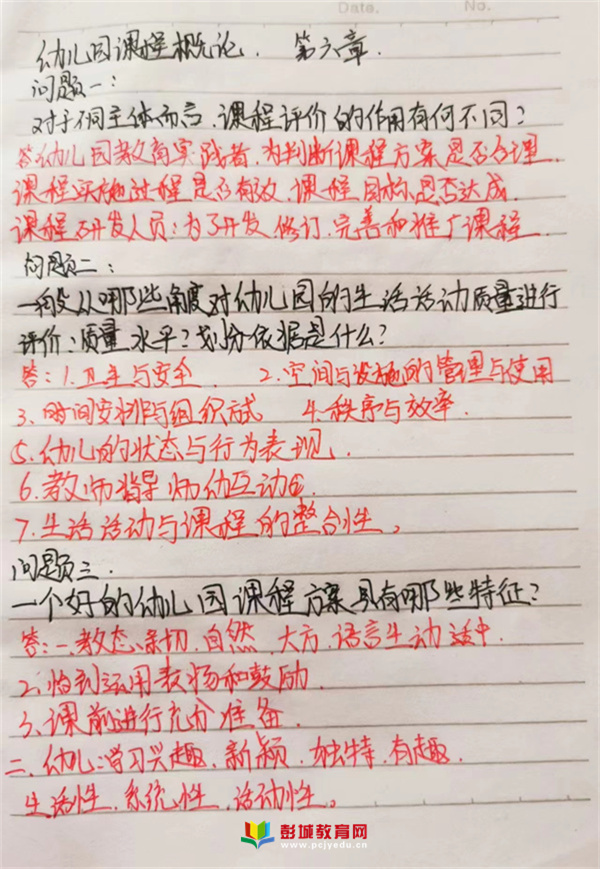 Date. No.
幼儿园课程概论. 第六章.
问题一:
对于不同主体而言,课程评价的作用有何不同?
答:幼儿园教育实践者,为判断课程方案是否合理
课程实施过程是否有效,课程目标是否达成
课程研发人员:为了开发、修订、完善和推广课程
问题二:
一般从哪些角度对幼儿园的生活活动质量进行
评价:质量水平?划分依据是什么?
答:1.卫生与安全. 2.空间与设施的管理与使用
3.时间安排与组织 4.秩序与效率.
5.幼儿的状态与行为表现,
6.教师指导师幼互动
7.生活活动与课程的整合性。
问题三:
一个好的幼儿园课程方案具有哪些特征?
答:一.教态:亲切,自然,大方,语言生动适中
2.恰到运用表扬和鼓励.
3.课前进行充分准备.
二、幼儿:学习兴趣、新颖、独特,有趣.
生活性,系统性,活动性。
彭城教育网
www.pcjyedu.cn